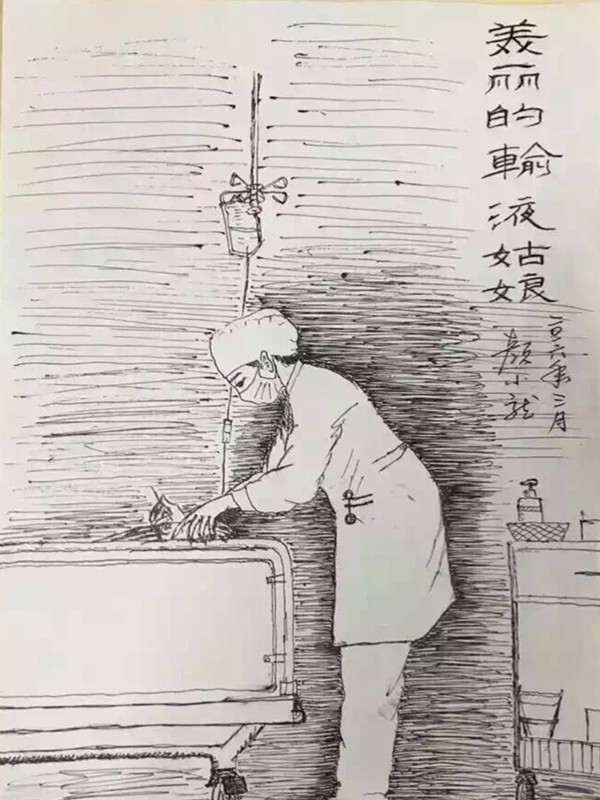 美丽的輸液姑娘
二〇一六年三月
颜小龍